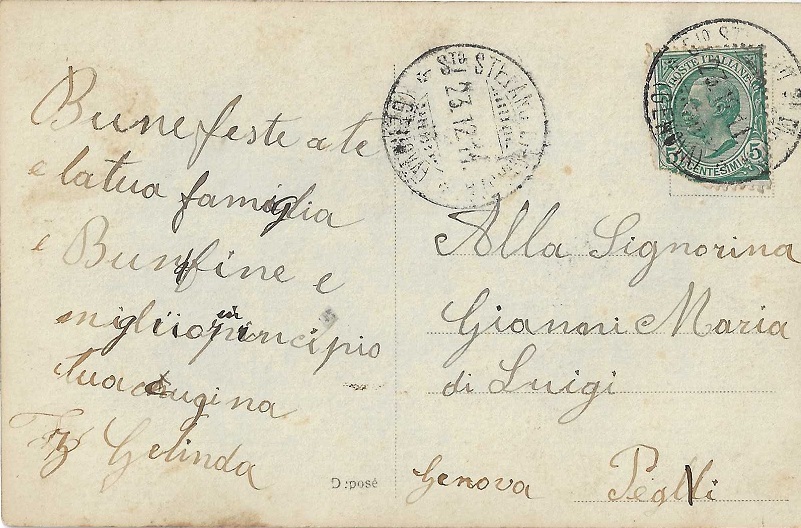 Bune feste a te
e la tua famiglia
e Bun fine e
migliior principio
tua cugina
Gelinda
Deposé
S.TO STEFANO
23.12.11
(GENOVA)
POSTE ITALIANE
CENTESIMI 5
Alla Signorina
Gianni Maria
di Luigi
Genova Peglli